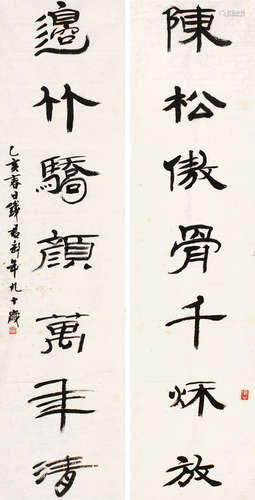 陳松傲骨千秌放
邊竹驕顏萬年清
乙亥春日錢君匋年九十歲